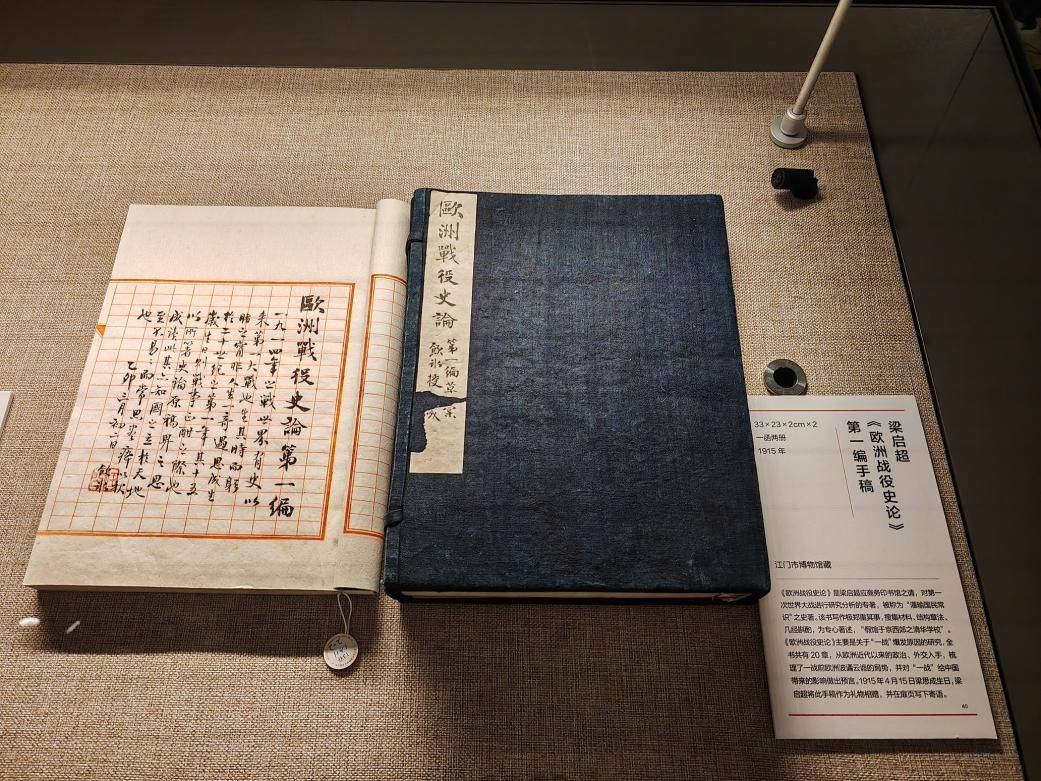 歐洲戰役史論第一編
一九一四年之戰世界有史以
來第一大戰也生其時而躬
睹之寧非人生一奇遇思成生
於二十世紀之第一年其十五
歲生日則戰事正酣之際也
以所著史論原稿畀之思
成讀此其亦知國之立於天地
至不易〻而常思奮瘁以報
也
乙卯三月初日 飲冰
歐洲戰役史論
第一編草稿
飲冰
梁启超
《欧洲战役史论》
第一编手稿
33×23×2cm×2
一函两册
1915 年
江门市博物馆藏
《欧洲战役史论》是梁启超应商务印书馆之请，对第一
次世界大战进行研究分析的专著，被称为“灌输国民常
识”之史著。该书写作极郑重其事，搜集材料、结构章法，
几经斟酌，为专心著述，“假馆于京西郊之清华学校”。
《欧洲战役史论》主要是关于“一战”爆发原因的研究。全
书共有 20 章，从欧洲近代以来的政治、外交入手，梳
理了一战前欧洲波谲云诡的局势，并对“一战”给中国
带来的影响做出预言。1915年4月15日梁思成生日，梁
启超将此手稿作为礼物相赠，并在扉页写下寄语。
40